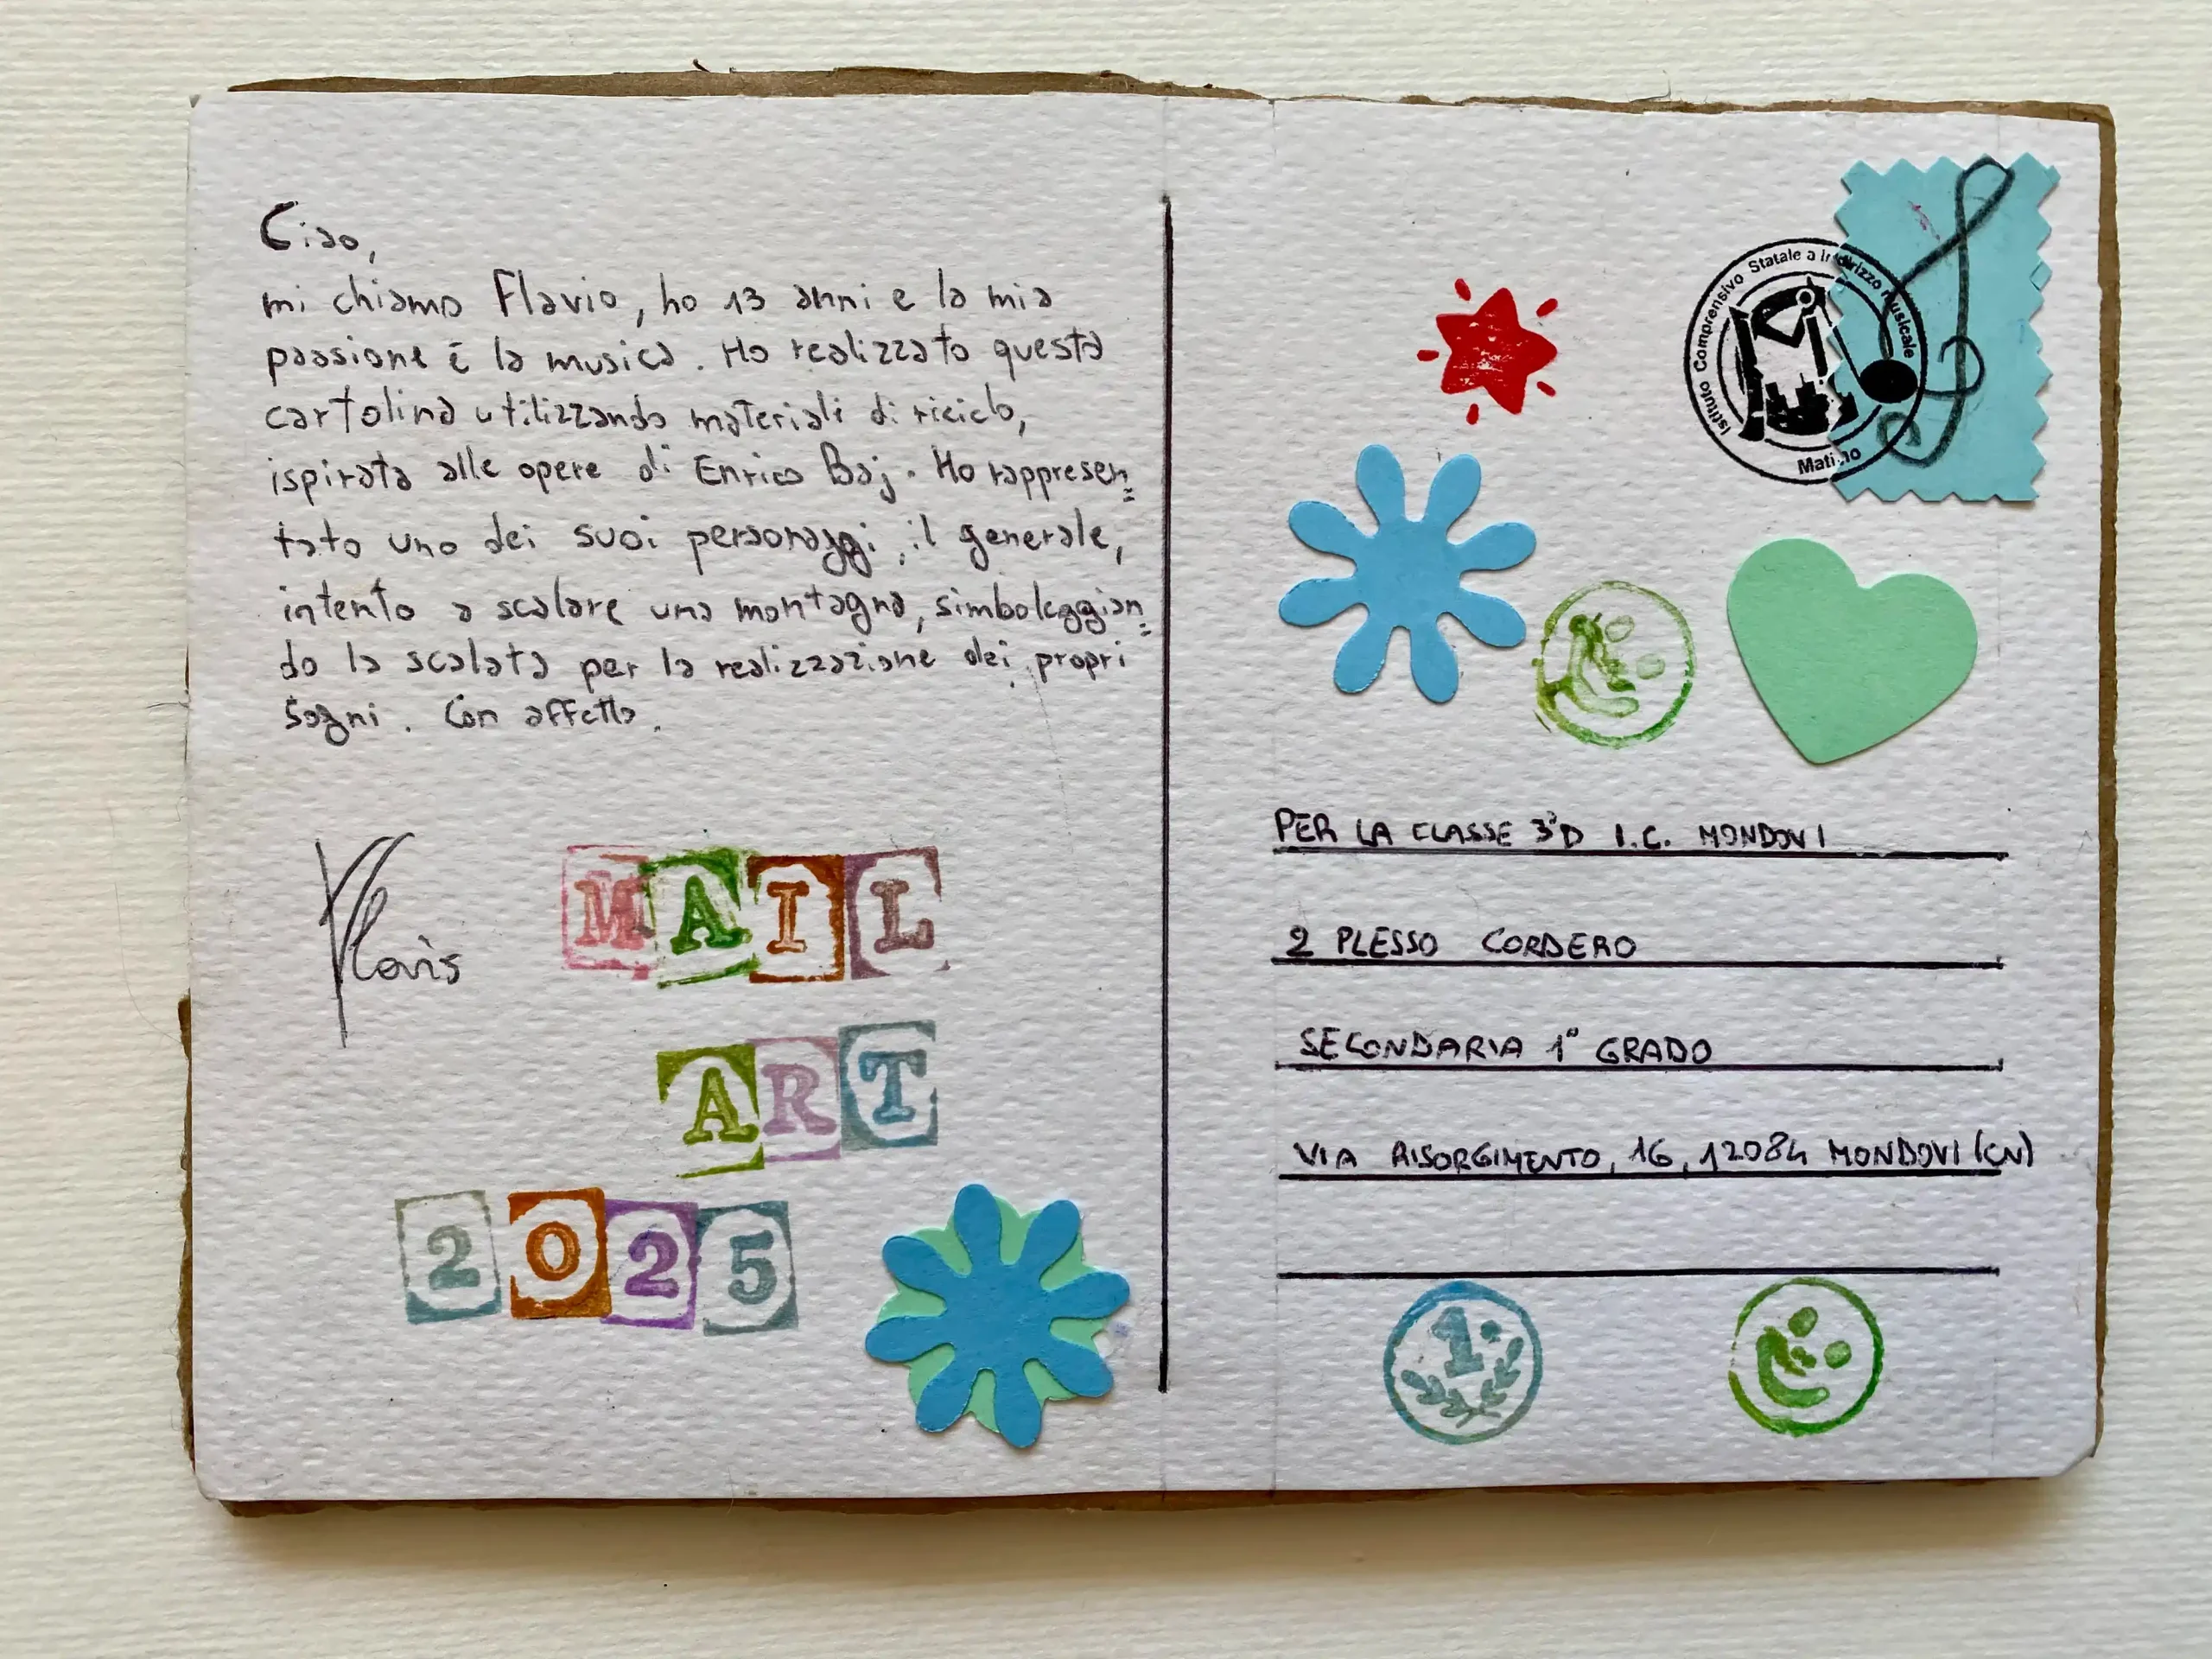 Ciao,
mi chiamo Flavio, ho 13 anni e la mia
passione è la musica. Ho realizzato questa
cartolina utilizzando materiali di riciclo,
ispirata alle opere di Enrico Baj. Ho rappresen=
tato uno dei suoi personaggi, il generale,
intento a scalare una montagna, simboleggian=
do la scalata per la realizzazione dei propri
sogni. Con affetto.
Flavio
MAIL
ART
2025
Istituto Comprensivo Statale a Indirizzo Musicale
Matino
PER LA CLASSE 3°D I.C. MONDOVI
2 PLESSO CORDERO
SECONDARIA 1° GRADO
VIA RISORGIMENTO, 16, 12084 MONDOVI (CN)
1°